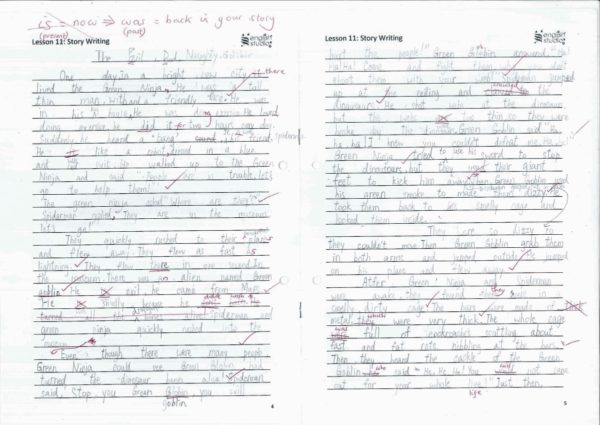 is = now => was = back in your story
(present) (past)
Lesson 11: Story Writing
english studio
The Evil, Bad, Naughty Goblin
One day, in a bright new city there
lived the Green Ninja. He was a tall
thin man with a friendly face. He was
in his house. He was doing exercise. He loved
doing exercise, he did it for two hours every day.
Suddenly he heard a "bang"
He like a robot, dressed in a blue
and suit. He walked up to the Green
Ninja and said "People are in trouble, let's
go to help them!"
The green ninja asked "Where are they?"
Spiderman replied, "They are in the museum
let's go!"
They quickly rushed to their planes
and flew away. They flew as fast as
lightning. They flew there in one second. In
the museum there was an alien named Green
goblin. He is evil and came from Mars.
He smelly because he
turned all the Spiderman and
green ninja quickly rushed into the
museum
Even though there were many people,
Green Ninja could see Green Goblin had
turned the dinosaur bones alive! Spiderman
said, "Stop you Green Goblin, you will
goblin
4
Lesson 11: Story Writing
english studio
hurt the people!" Green Goblin answered "Ha!
Ha! Ha! Come and fight them
shoot them with your web!" Spiderman jumped
up at the ceiling and
dinosaurs. He shot webs at the dinosaur
but the webs too thin so they were
broke by the dinosaur. Green Goblin said "Ha,
ha, ha! I knew you couldn't defeat them."
Green Ninja tried to use his sword to stop
the dinosaurs, but they use their giant
feet to kick him away. Then Green Goblin used
his green smoke to made them dizzy. He
took them back to his smelly cage and
locked them inside.
They were so dizzy
they couldn't move. Then Green Goblin grab them
in both arms and jumped outside. He jumped
on his plane and flew away.
After Green Ninja and Spiderman
was awake they found they are in a
smelly dirty cage. The bars were made of
metal, they were very thick. The whole cage
was full of cockroaches
and fat rats nibbling at the bars.
Then they heard the cackle of the Green
Goblin who said "He, He, He! You will not come
out for your whole live!" Just then,
life
5